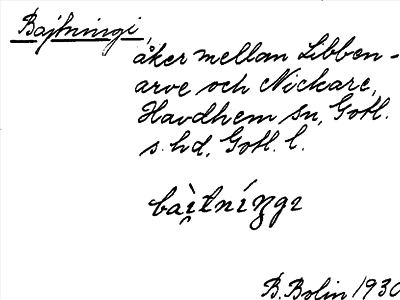 Bajtningi,
åker mellan Libben-
arve och Nickare,
Havdhem sn, Gotl.
s. hd, Gotl. l.
baì̯tníŋgı
B. Bolin 1930